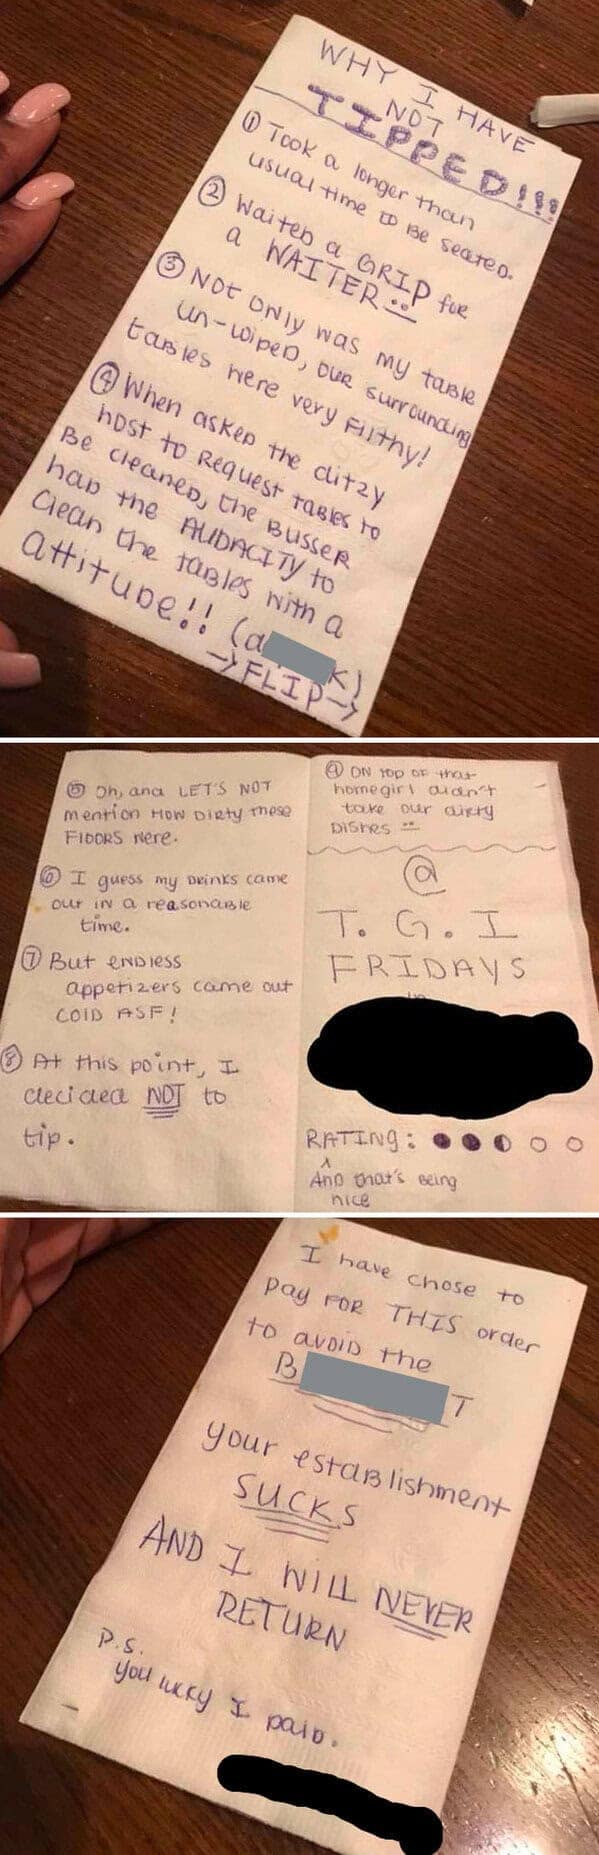 WHY I HAVE
NOT
TIPPED!!!
① Took a longer than
usual time to be seated.
② Waited a GRIP for
a WAITER
③ Not only was my table
un-wiped, our surrounding
tables were very Filthy!
④ When asked the ditzy
host to request tables to
Be cleaned, the Busser
had the AUDACITY to
clean the tables with a
attitude!! (a k)
→FLIP→
⑤ Oh, and LET'S NOT
mention HOW Dirty these
FlOORS were.
⑥ I guess my Drinks came
out in a reasonable
time.
⑦ But endless
appetizers came out
COlD ASF!
⑧ At this point, I
decided NOT to
tip.
⑨ ON top of that
homegirl didn't
take our dirty
Dishes
@
T. G. I
FRIDAYS
in
RATING:
And that's Being
nice
I have chose to
pay FOR THIS order
to avoid the
B T
your establishment
SUCKS
AND I WILL NEVER
RETURN
P.S.
you lucky I paid.